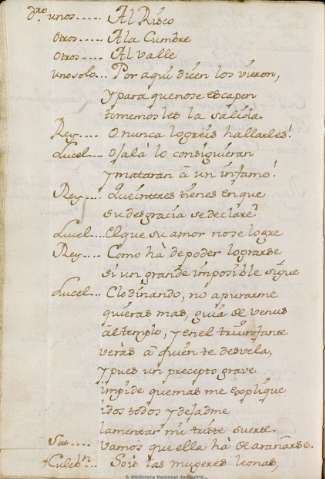 Dro. unos..... Al Risco
otros.... A la Cumbre
otros.... Al valle
uno solo... Por aqui diçen los vieron,
y para que no se escapen
tomemosles la salida.
Rey..... O nunca logreis hallarles!
Lucel.... Ojalà lo consiguieran
y mataran à un infame!
Rey..... Que interes tienes en que
su desgracia se declare?
Lucel.... El que su amor no se logre
Rey..... Como hà de poder lograrse
si un grande imposible sigue
Lucel.... Clodinando, no apurarme
quieras mas, guia de venus
al templo, y en el
veràs à quien te desvela,
y pues un precepto grave
impide que mas me explique
idos todos y dejadme
lamentar mi suerte.
vamos que ella hà de arañarse.
Culebn. Sois las mugeres leonas,
Biblioteca Nacional de España